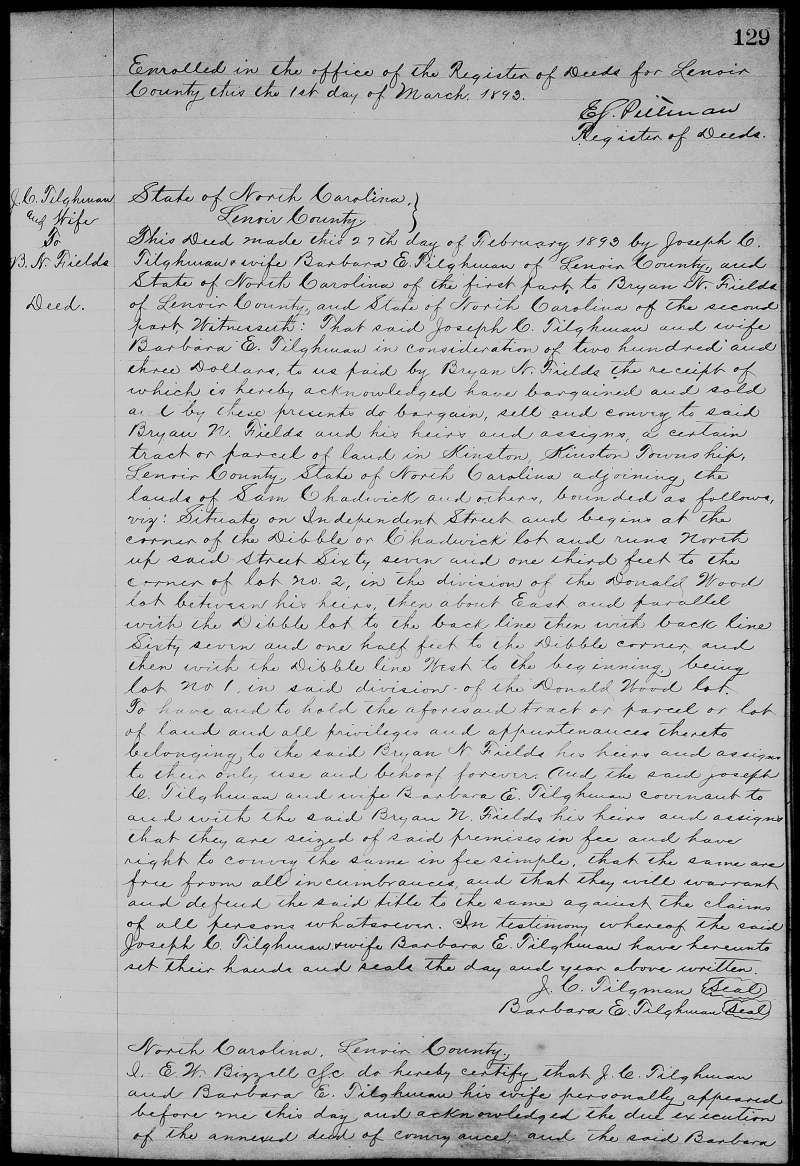 129
Enrolled in the office of the Register of Deeds for Lenoir
County this the 1st day of March, 1893.
Pittman
Register of Deeds.
J. C. Tilghman
and Wife
To
B. N. Fields
Deed.
State of North Carolina,
Lenoir County,
This Deed made this 27th day of February 1893 by Joseph C.
Tilghman & wife Barbara E. Tilghman of Lenoir County, and
State of North Carolina of the first part, to Bryan N. Fields
of Lenoir County, and State of North Carolina of the second
part, Witnesseth: That said Joseph C. Tilghman and wife
Barbara E. Tilghman in consideration of two hundred and
three Dollars, to us paid by Bryan N. Fields the receipt of
which is hereby acknowledged have bargained and sold
and by these presents do bargain, sell and convey to said
Bryan N. Fields and his heirs and assigns, a certain
tract or parcel of land in Kinston, Kinston Township,
Lenoir County, State of North Carolina adjoining the
lands of Sam Chadwick and others, bounded as follows,
viz: Situate on Independent Street and begins at the
corner of the Dibble or Chadwick lot and runs North
up said street Sixty seven and one third feet to the
corner of lot no. 2, in the division of the Donald Wood
lot between his heirs, then about East and parallel
with the Dibble lot to the back line then with back line
Sixty seven and one half feet to the Dibble corner, and
then with the Dibble line West to the beginning, being
lot No 1. in said division of the Donald Wood lot.
To have and to hold the aforesaid tract or parcel or lot
of land and all privileges and appurtenances thereto
belonging, to the said Bryan N Fields his heirs and assigns
to their only use and behoof forever. And the said Joseph
C. Tilghman and wife Barbara E. Tilghman covenant to
and with the said Bryan N. Fields his heirs and assigns
that they are seized of said premises in fee and have
right to convey the same in fee simple, that the same are
free from all incumbrances, and that they will warrant
and defend the said title to the same against the claims
of all persons whatsoever. In testimony whereof the said
Joseph C. Tilghman & wife Barbara E. Tilghman have hereunto
set their hands and seals the day and year above written.
J. C. Tilgman (Seal)
Barbara E. Tilghman (Seal)
North Carolina, Lenoir County,
I. E. W. Bizzell CSC do hereby certify that J. C. Tilghman
and Barbara E. Tilghman his wife personally appeared
before me this day and acknowledged the due execution
of the annexed deed of conveyance: and the said Barbara